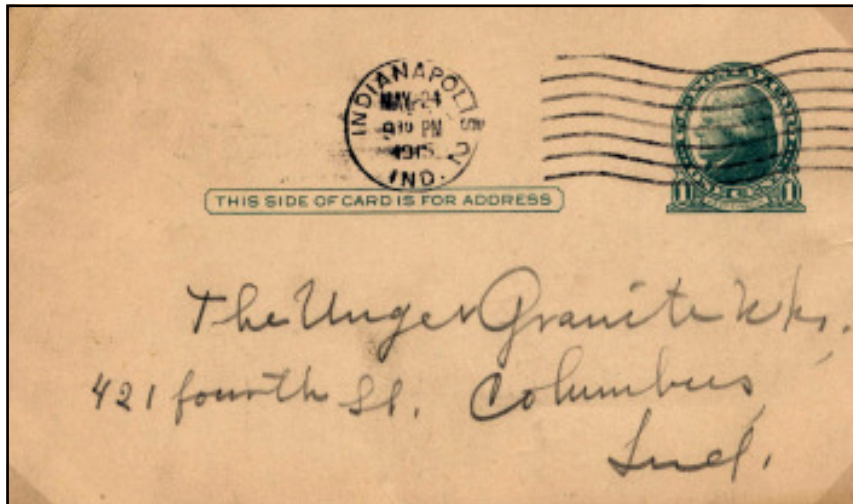 INDIANAPOLIS
MAY 24
9 30 PM
1915
IND. 2
THIS SIDE OF CARD IS FOR ADDRESS
1 1
The Unger Granite Wks.
421 fourth St. Columbus,
Ind.